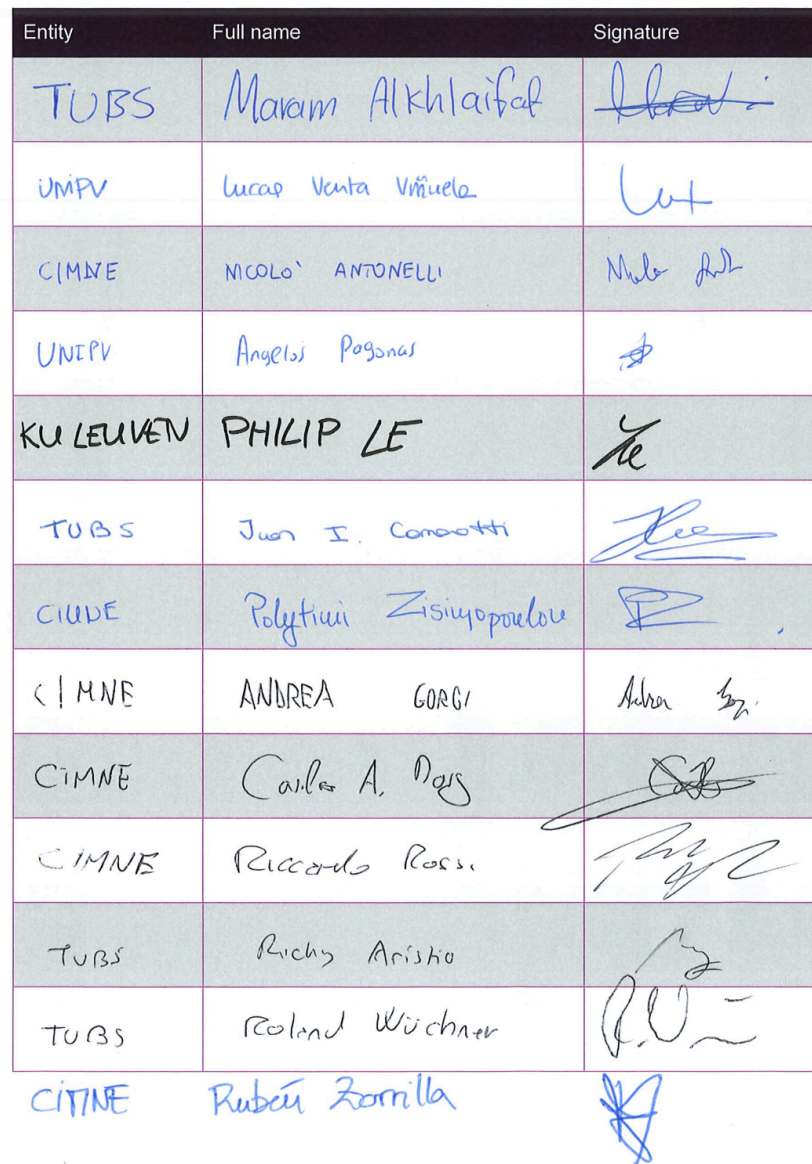 Entity Full name Signature
TUBS Maram Alkhlaifat
UNIPV Lucas Venta Viñuela
CIMNE NICOLO' ANTONELLI
UNIPV Angelos Pagonas
KU LEUVEN PHILIP LE
TUBS Juan I. Camarotti
CIMNE Polytimi Zisimopoulou
CIMNE ANDREA GORGI
CIMNE Carlos A.
CIMNE Riccardo Rossi
TUBS Richy Aristio
TUBS Roland Wüchner
CIMNE Rubén Zorrilla